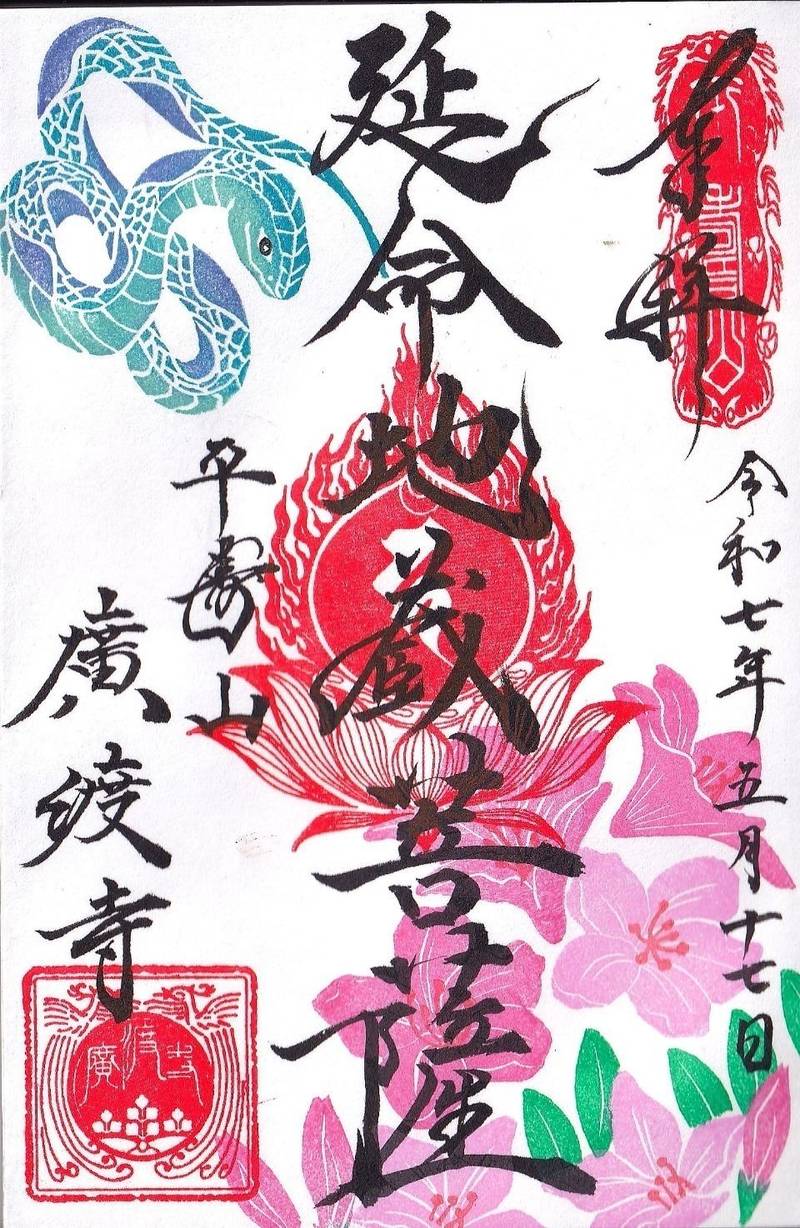 奉拝
令和七年五月十七日
延命地蔵菩薩
平壽山
廣渡寺
廣渡寺